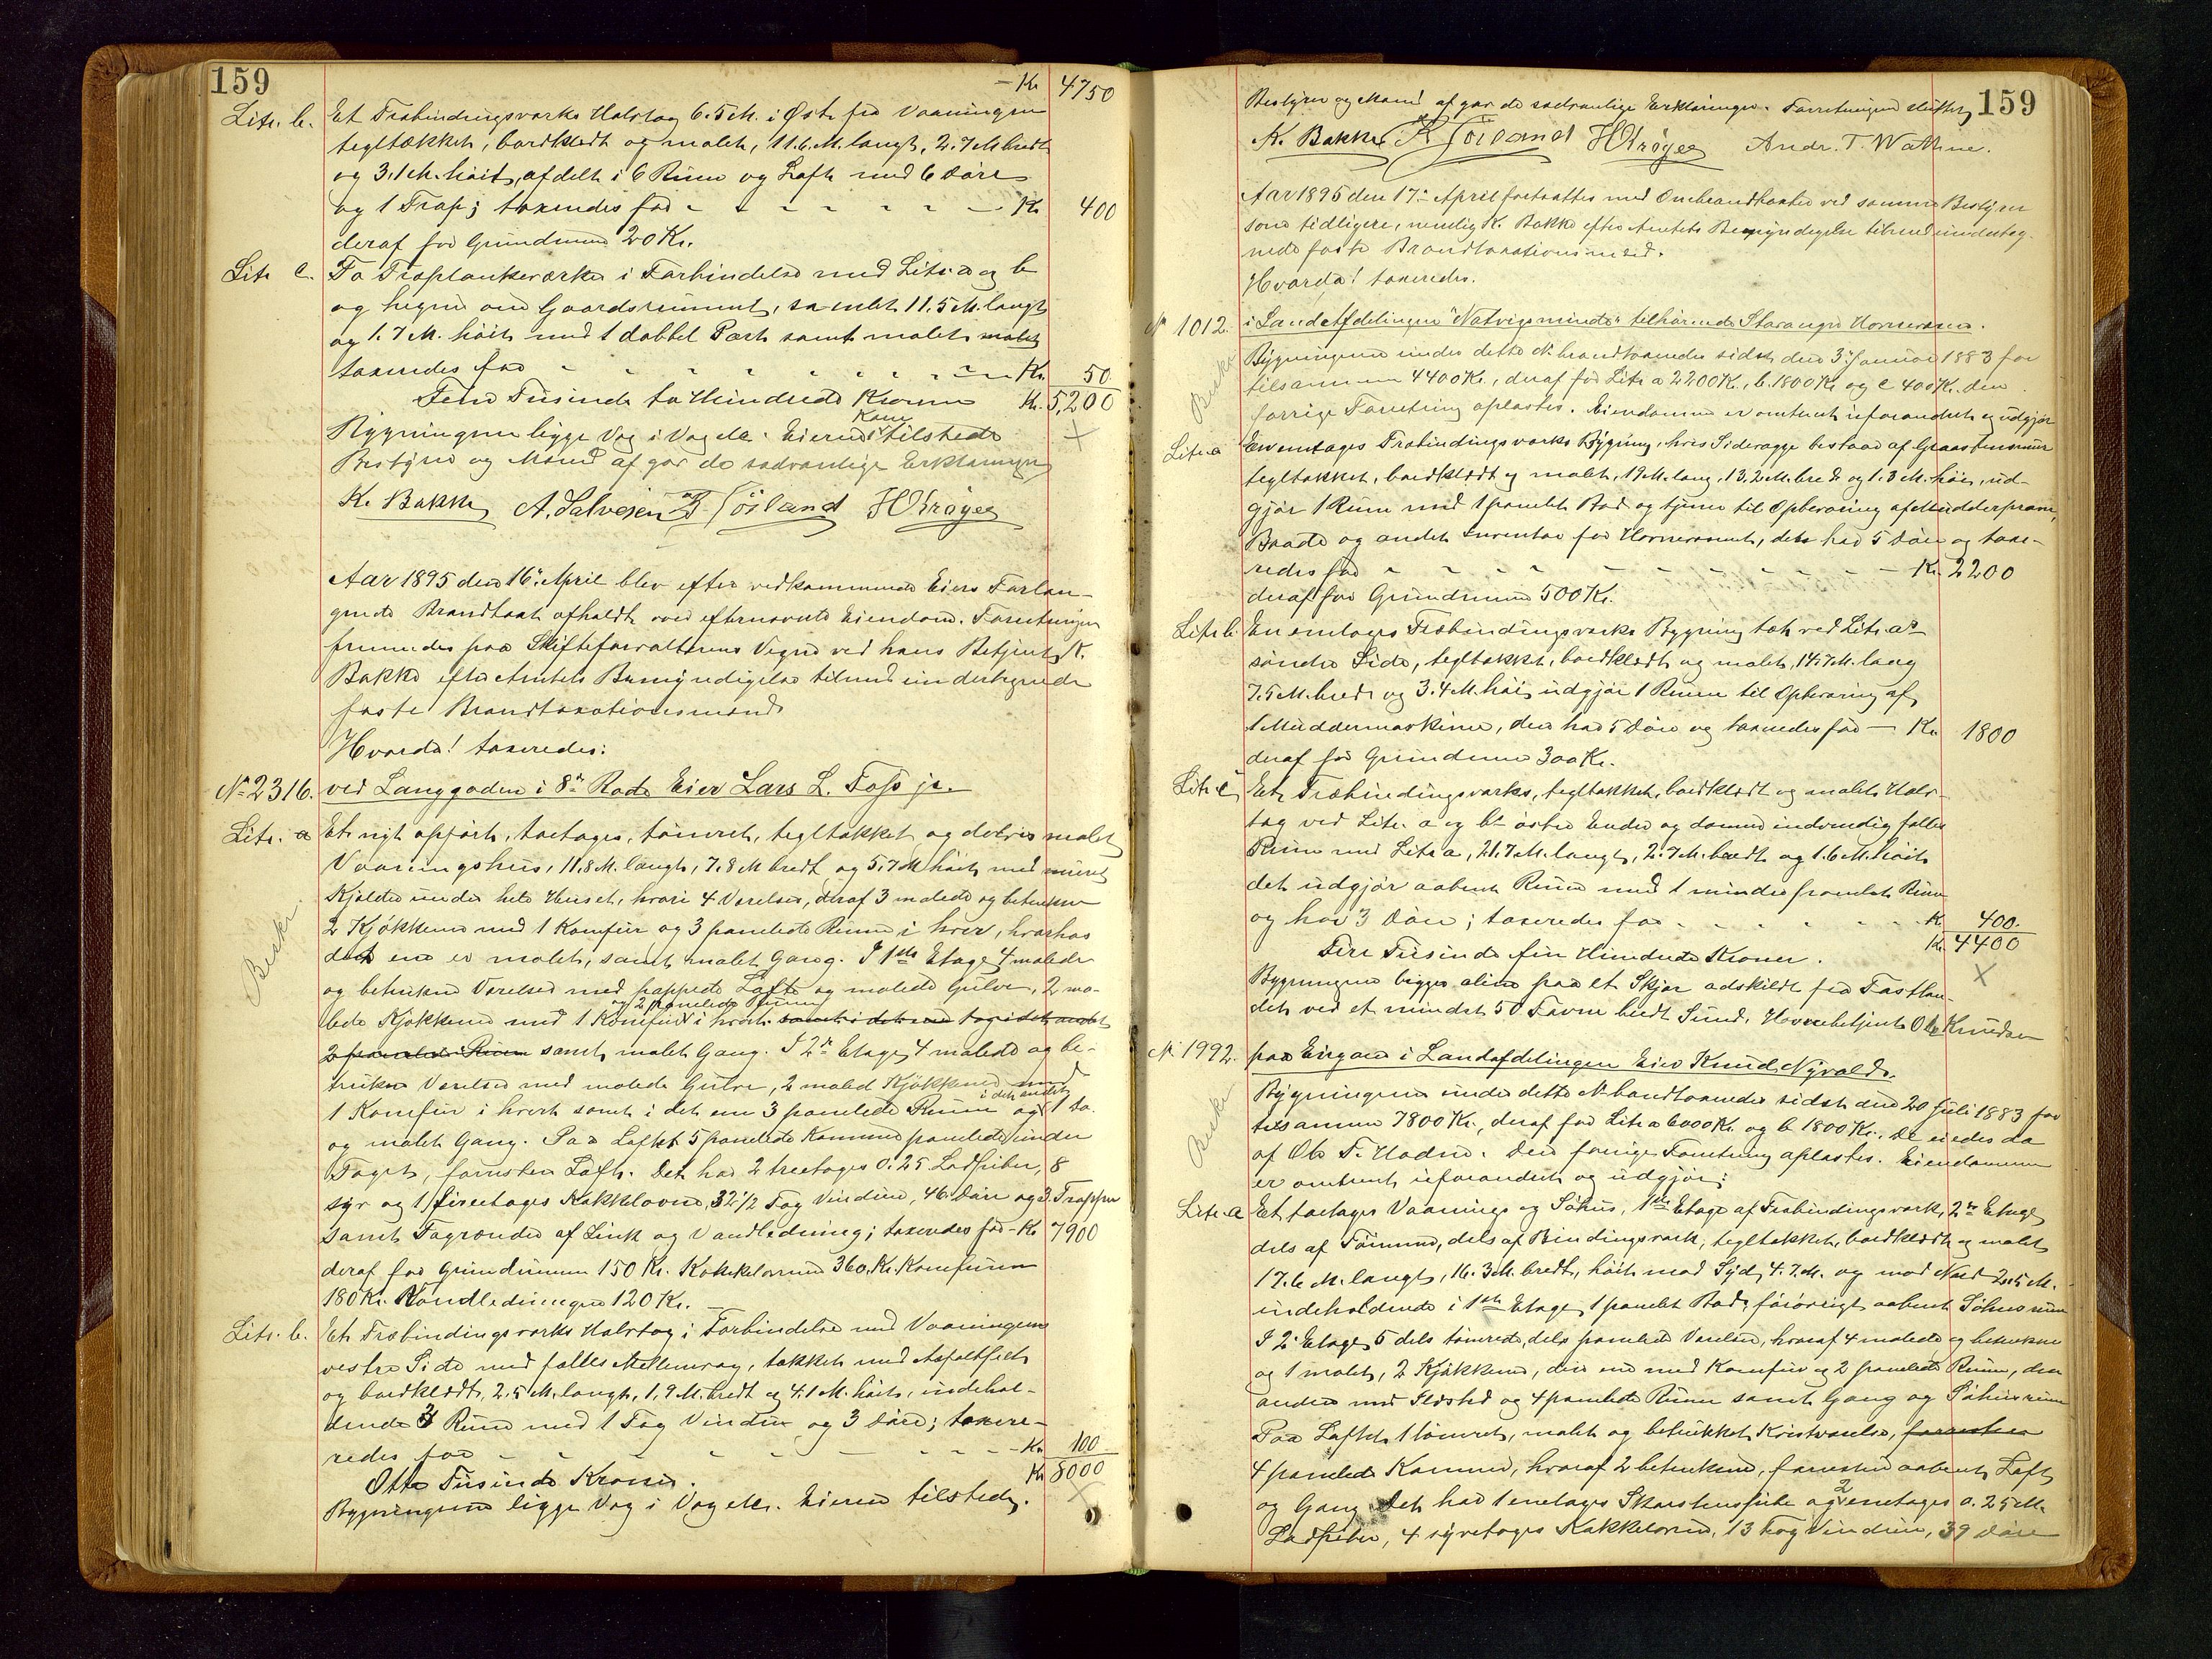 159
- Kr 4750
Litr. b. Et Træbindingsværks Halvtag 6.5 M. i Øst fra Vaaningen
tegltækket, bordklædt og malet, 11.6 M. langt, 2.7 M bredt
og 3.1 M. høit, afdelt i 6 Rum og Loft med 6 Døre
og 1 Trap; taxeredes for - - - - - - - Kr 400
deraf for Grundmur 20 Kr.
Litr c. To Træplankeværker i Forbindelse med Litr. a og b
og hegner om Gaardsrummet, samlet 11.5 M. langt
og 1.7 M. høit med 1 dobbel Port samt malet malet
taxeredes for - - - - - - - - Kr. 50
Fem Tusinde to Hundrede Kroner Kr. 5,200
Bygningerne ligge Væg i Væg etc. Eierens Kone tilstede
Bestyrer og Mænd afgav de sædvanlige Erklæringer
K. Bakke A. Salvesen B. Göiland H Krøger
Aar 1895 den 16. April blev efter vedkommende Eiers Forlan-
gende Brandtaxt afholdt over efternævnte Eiendom. Forretningen
fremmedes paa Skifteforvalterens Vegne ved hans Betjent K.
Bakke efter Amtets Bemyndigelse tilmed undertegnede
faste Brandtaxationsmænd
Hvorda! taxeredes:
No 2316. ved Langgaden i 8de Rode Eier Lars L. Foss jr.
Litr. a Et nyt opført, toetages, tømret, tegltækket og delvis malet
Vaaningshus, 11.8 M. langt, 7.8 M bredt og 5.7 M høit med muret
Kjelder under hele Huset, hvori 4 Værelser, deraf 3 malede og betrukne
2 Kjøkkener med 1 Komfur og 3 panelede Rum i hver, hvorhos
det ene er malet, samt malet Gang. I 1ste Etage 4 malede
og betrukne Værelser med pappede Lofte og malede Gulve, 2 ma-
og 2 panelede Rum
lede Kjøkkener med 1 Komfur i hvert samt i det ene tag i det andet
2 panelede Rum samt malet Gang. I 2n Etage 4 malede og be-
trukne Værelser med malede Gulve, 2 maled Kjøkkener med
i det andet
1 Komfur i hvert samt i det ene 3 panelede Rum og 1 do.
og malet Gang. Paa Loftet 5 panelede Kammer panelede under
Taget, forresten Loft. Det har 2 treetages 0.25 Ladpiber, 8
syv og 1 fireetages Kakkelovne, 32 1/2 Fag Vinduer, 46 Døre og 3 Trapper
samt Tagrender af Zink og Vandledning; taxeredes for - Kr 7900
deraf for Grundmuren 150 Kr. Kakkelovne 360 Kr. Komfurer
180 Kr. Vandledningen 120 Kr.
Beskr.
Litr. b. Et Træbindingsværks Halvtag i Forbindelse med Vaaningens
vestre Side med fælles Mellemvæg, tækket med Asfaltfilt
og bordklædt, 2.5 M. langt, 1.9 M. bredt og 4.1 M. høit, indehol-
dende 3 Rum med 1 Fag Vindu og 3 Døre; taxere-
redes for - - - - - - - - Kr. 100
Otte Tusinde Kroner. Kr 8000
Bygningerne ligge Væg i Væg etc. Eieren tilstede.
159
Bestyrer og Mænd afgav de sædvanlige Erklæringer. Forretningen sluttet
K. Bakke B Göiland H Krøger Andr. T. Wathne.
Aar 1895 den 17. April fortsattes med Ombrandtaxter ved samme Bestyrer
som tidligere, nemlig K. Bakke efter Amtets Bemyndigelse tilmed underteg-
nede faste Brandtaxationsmænd.
Hvorda! taxeredes.
No 1012. i Landafdelingen "Natvigsminde" tilhørende Stavanger Havnevæsen.
Beskr.
Bygningerne under dette No brandtaxeredes sidst den 3. Januar 1883 for
tilsammen 4400 Kr., deraf for Litr a 2200 Kr., b. 1800 Kr og c 400 Kr. den
forrige Forretning oplæstes. Eiendommen er omtrent uforandret og udgjør
Litr. a En enetages Træbindingsværks Bygning, hvis Sidevægge bestaar af Graastensmur
tegltækket, bordklædt og malet, 19 M. lang, 13,2 M. bred og 1.8 M. høi, ud-
gjør 1 Rum med 1 panelet Bod og tjener til Opbevaring af Mudderpram,
Baade og andet Inventar for Havnevæsenet, den har 5 Døre og taxe-
redes for - - - - - - - - - Kr. 2200
deraf for Grundmuren 500 Kr.
Litr. b. En enetages Træbindingsværks Bygning tæt ved Litr. a's
søndre Side, tegltækket, bordklædt og malet, 14.7 M. lang
7.5 M. bred og 3.4 M. høi, udgjør 1 Rum til Opbevaring af
1 Muddermaskine, den har 5 Døre og taxeredes for - Kr. 1800
deraf for Grundmuren 300 Kr.
Litr. c Et Træbindingsværks, tegltækket, bordklædt og malet Halv-
tag ved Litr. a og b's østre Ender og danner indvendig fælles
Rum med Litr a, 21.7 M. langt, 2.7 M. bredt og 1.6 M. høit
det udgjør aabent Rum med 1 mindre panelet Rum
og har 3 Døre; taxeredes for - - - - - - Kr 400.
Fire Tusinde fire Hundrede Kroner. Kr. 4400
Bygningerne ligger alene paa et Skjær adskildt fra Fastlan-
det ved et mindst 50 Favne bredt Sund. Havnebetjent Ole Knudsen
No 1992. paa Engøen i Landafdelingen Eier Knud Nyvold.
Beskr.
Bygningerne under dette No brandtaxeredes sidst den 20 Juli 1883 for
tilsammen 7800 Kr., deraf for Litr a 6000 Kr. og b 1800 Kr. De eiedes da
af Ole T. Hodne. Den forrige Forretning oplæstes. Eiendommen
er omtrent uforandret og udgjør:
Litr. a Et toetages Vaanings og Søhus, 1ste Etage af Træbindingsværk, 2n Etage
dels af Tømmer, dels af Bindingsværk, tegltækket, bordklædt og malet
17.6 M. langt, 16.3 M. bredt, høit mod Syd 4.7 M. og mod Nord 2.5 M.
indeholdende i 1ste Etage 1 panelet Bod, forøvrigt aabent Søhusrum
I 2. Etage 5 dels tømrede, dels panelede Værelser, hvoraf 4 malede og betrukne
og 1 malet, 2 Kjøkkener, den ene med Komfur og 2 panelede Rum, den
anden med Ildsted og 4 panelede Rum samt Gang og Søhusrum
Paa Loftet 1 tømret, malet og betrukket Kvistværelse, forresten
4 panelede Kammer, hvoraf 2 betrukne, forresten aabent Loft
og Gang. Det har 1 enetages Skorstenspibe og 2 enetages 0.25 M.
Ladpiber, 4 syvetages Kakkelovne, 13 Fag Vinduer, 39 Døre